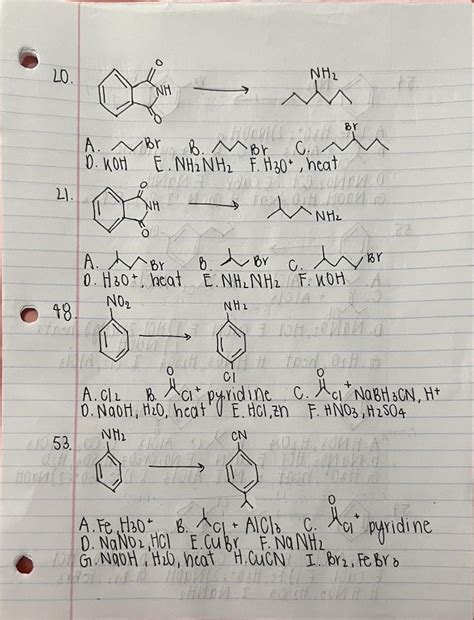 20.
O
NH
O
NH₂
A. Br B. Br C. Br
D. KOH E. NH₂NH₂ F. H₃O⁺, heat
21.
O
NH
O
NH₂
A. Br B. Br C. Br
D. H₃O⁺, heat E. NH₂NH₂ F. KOH
48.
NO₂
NH₂
Cl
A. Cl₂ B. O Cl + pyridine C. O Cl + NaBH₃CN, H⁺
D. NaOH, H₂O, heat E. HCl, Zn F. HNO₃, H₂SO₄
53.
NH₂
CN
A. Fe, H₃O⁺ B. Cl + AlCl₃ C. O Cl + pyridine
D. NaNO₂, HCl E. CuBr F. NaNH₂
G. NaOH, H₂O, heat H. CuCN I. Br₂, FeBr₃